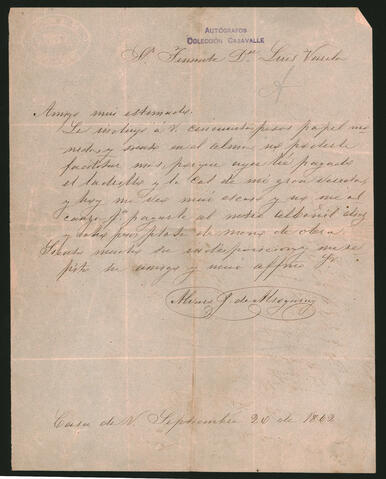 AUTÓGRAFOS
COLECCIÓN CASAVALLE
Sr. Teniente Dn Luis Varela
Amigo mio estimado.
Le incluyo á V. cincuenta pesos papel mo
neda, y siento en el alma no poderle
facilitar mas, porque ayer he pagado
el ladrillo y la cal de mi gran
y hoy me veo mui escaso y no me al
canza pa pagarle al mtro albañil diez
y ocho pesos plata de mano de obra.
Siento mucho su indisposicion, y me re
pito su amigo y mui affmo Sr.
de
Casa de V. Septiembre 26 de 1862